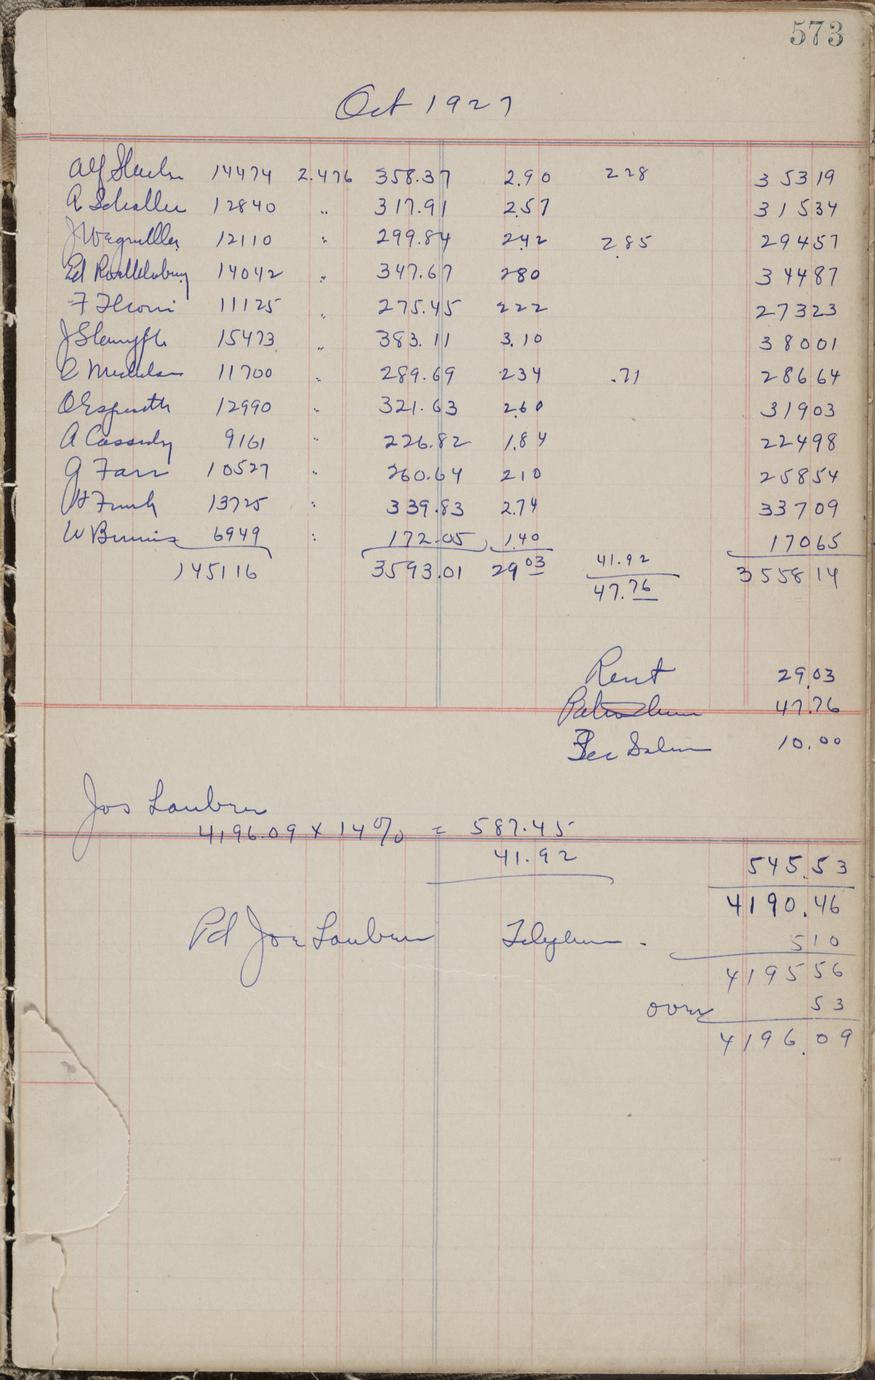 573
Oct 1927
Alf 14474 2.476 358.37 2.90 228 35319
A Schaller 12840 " 317.91 2.57 31534
J 12110 " 299.84 242 285 29457
Ed 14042 " 347.67 280 34487
F 11125 " 275.45 222 27323
J 15473 " 383.11 3.10 38001
C 11700 " 289.69 234 .71 28664
O 12990 " 321.63 260 31903
A Cassedy 9161 " 226.82 1.84 22498
G Farr 10527 " 260.64 210 25854
H Funk 13725 " 339.83 2.74 33709
W 6949 " 172.05 1.40 17065
145116 3593.01 29 03 41.92 355814
47.76
Rent 29.03
47.76
Sec 10.00
Jos Laubner
4196.09 x 14% = 587.45
41.92 545.53
4190.46
Pd Joe Laubner 510
419556
over 53
4196.09